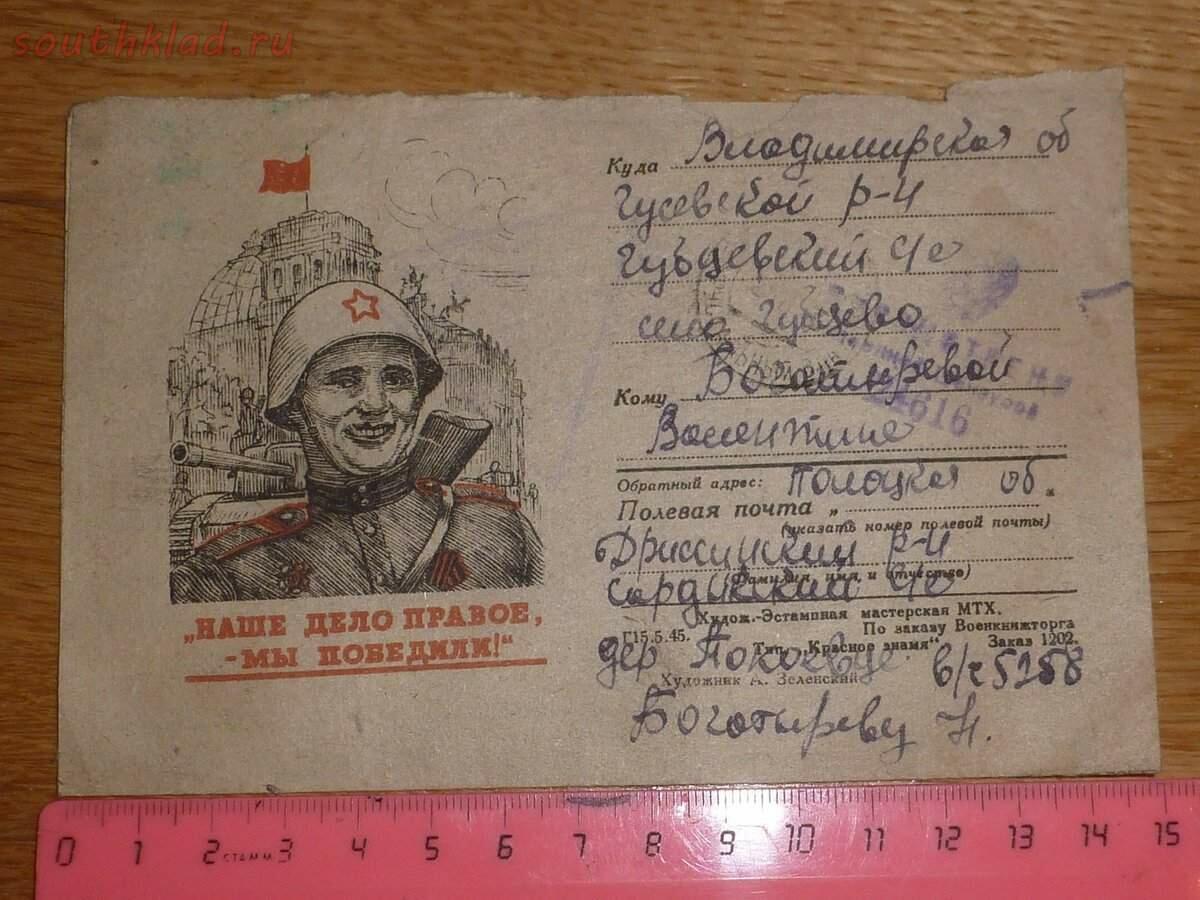 southklad.ru
Куда Владимирская об
Гусевской р-н
с/с
село
Кому Богатыревой
Валентине
616
Обратный адрес: Полоцкая об.
Полевая почта „
(указать номер полевой почты)
Дриссинский р-н
(Фамилия, имя и отчество)
с/с
Худож.-Эстампная мастерская МТХ.
Г15.5.45. По заказу Военкнижторга
Тип. „Красное знамя“ Заказ 1202.
дер в/ч 5258
Художник А. Зеленский
Богатыреву Н.
„НАШЕ ДЕЛО ПРАВОЕ,
-МЫ ПОБЕДИЛИ!“
0 1 2 стамм 3 4 5 6 7 8 9 10 11 12 13 14 15